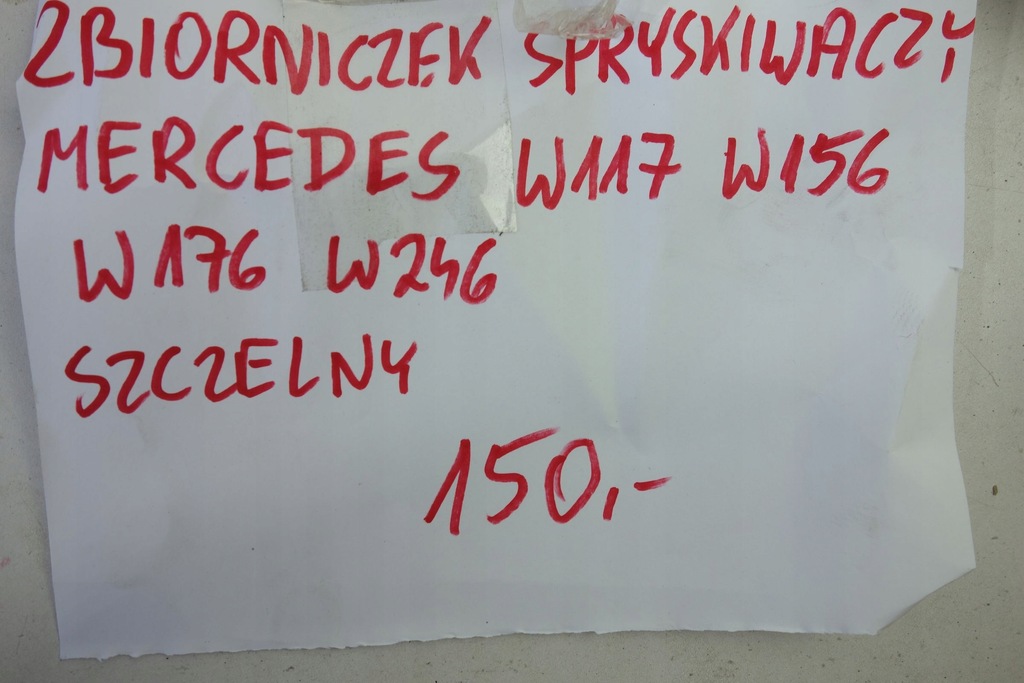 ZBIORNICZEK SPRYSKIWACZY
MERCEDES W117 W156
W176 W246
SZCZELNY
150,-